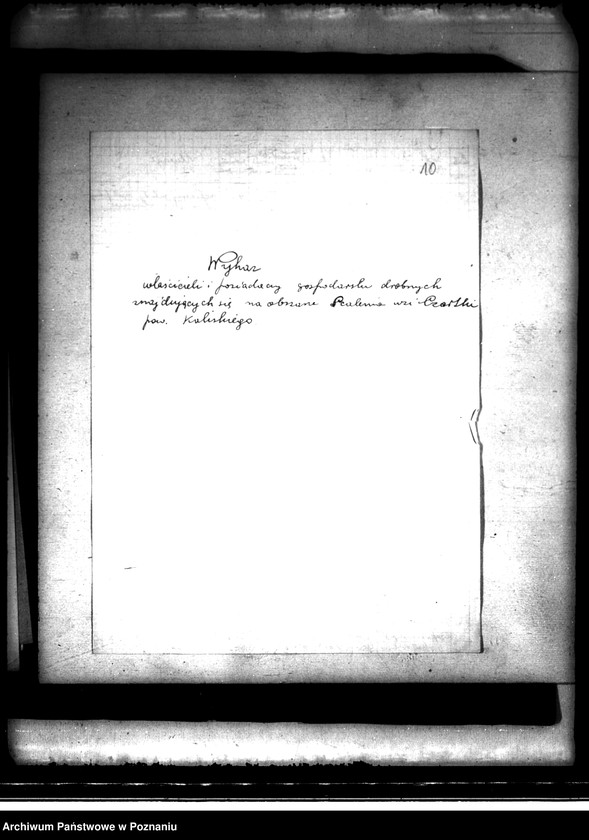 10
Wykaz
właścicieli i posiadaczy gospodarstw drobnych
znajdujących się na obszarze scalenia wsi Czartki
pow. Kaliskiego
Archiwum Państwowe w Poznaniu